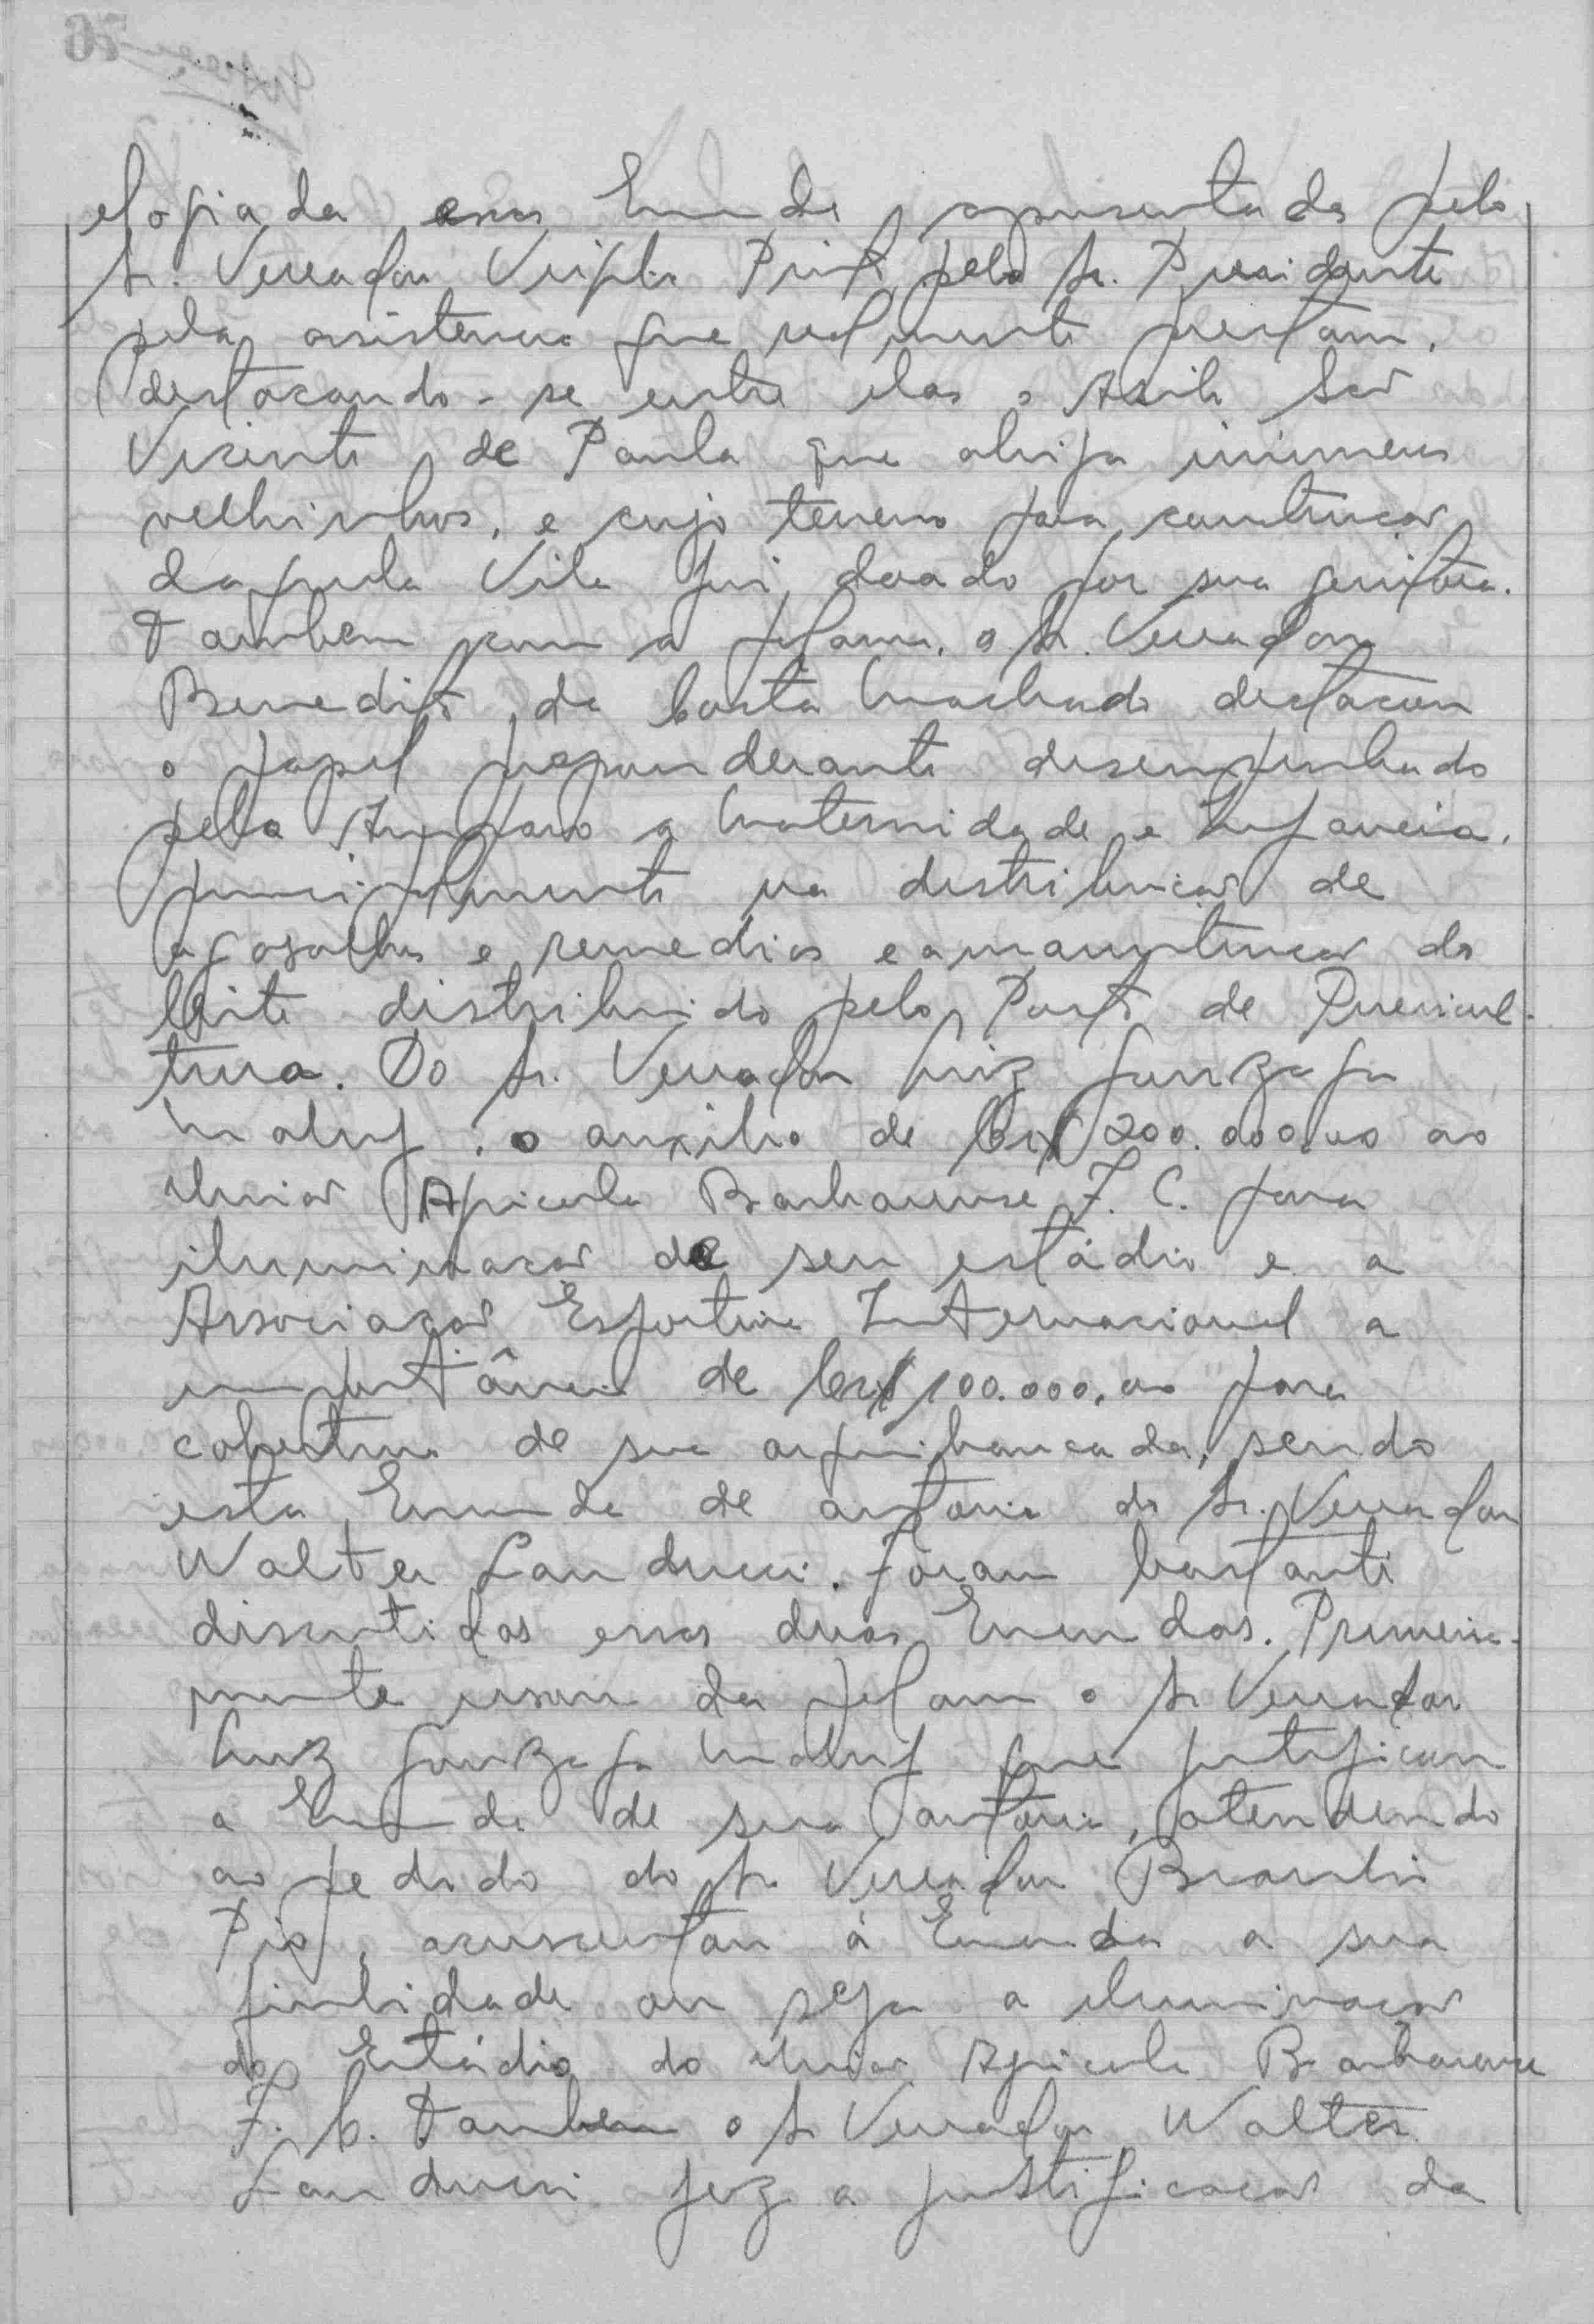 elogiada essa Emenda apresentada pelo
Sr. Vereador Virgilio Pinto pelo Sr. Presidente
pela assistencia que realmente prestam,
destacando-se entre elas o Asilo São
Vicente de Paula que abriga inúmeros
velhinhos, e cujo terreno para construção
daquela Vila foi doado por sua genitora.
Tambem com a palavra, o Sr. Vereador
Benedito da Costa Machado destacou
o papel preponderante desempenhado
pelo Amparo a Maternidade e Infancia,
principalmente na distribuição de
agasalhos e remedios e a manutenção do
leite distribuido pelo Posto de Puericul-
tura. Do Sr. Vereador Luiz Gonzaga
Maluf, o auxilio de Cr$ 200.000,00 ao
União Agricola Barbarense F. C. para
iluminação de seu estádio e a
Associação Esportiva Internacional a
importância de Cr$ 100.000,00 para
cobertura de sua arquibancada, sendo
esta Emenda de autoria do Sr. Vereador
Walter Landucci. Foram bastante
discutidas essas duas Emendas. Primeira-
mente usou da palavra o Sr Vereador
Luiz Gonzaga Maluf que justificou
a Emenda de sua autoria, atendendo
ao pedido do Sr Vereador Braulio
Pio, acrescentou á Emenda a sua
finalidade ou seja a iluminação
do Estádio do União Agricola Barbarense
F. C. Tambem o Sr Vereador Walter
Landucci fez a justificação da